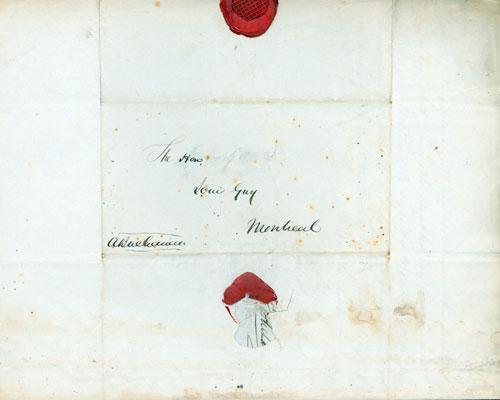 The Hon
Loui Guy
Montreal
ABuchanan